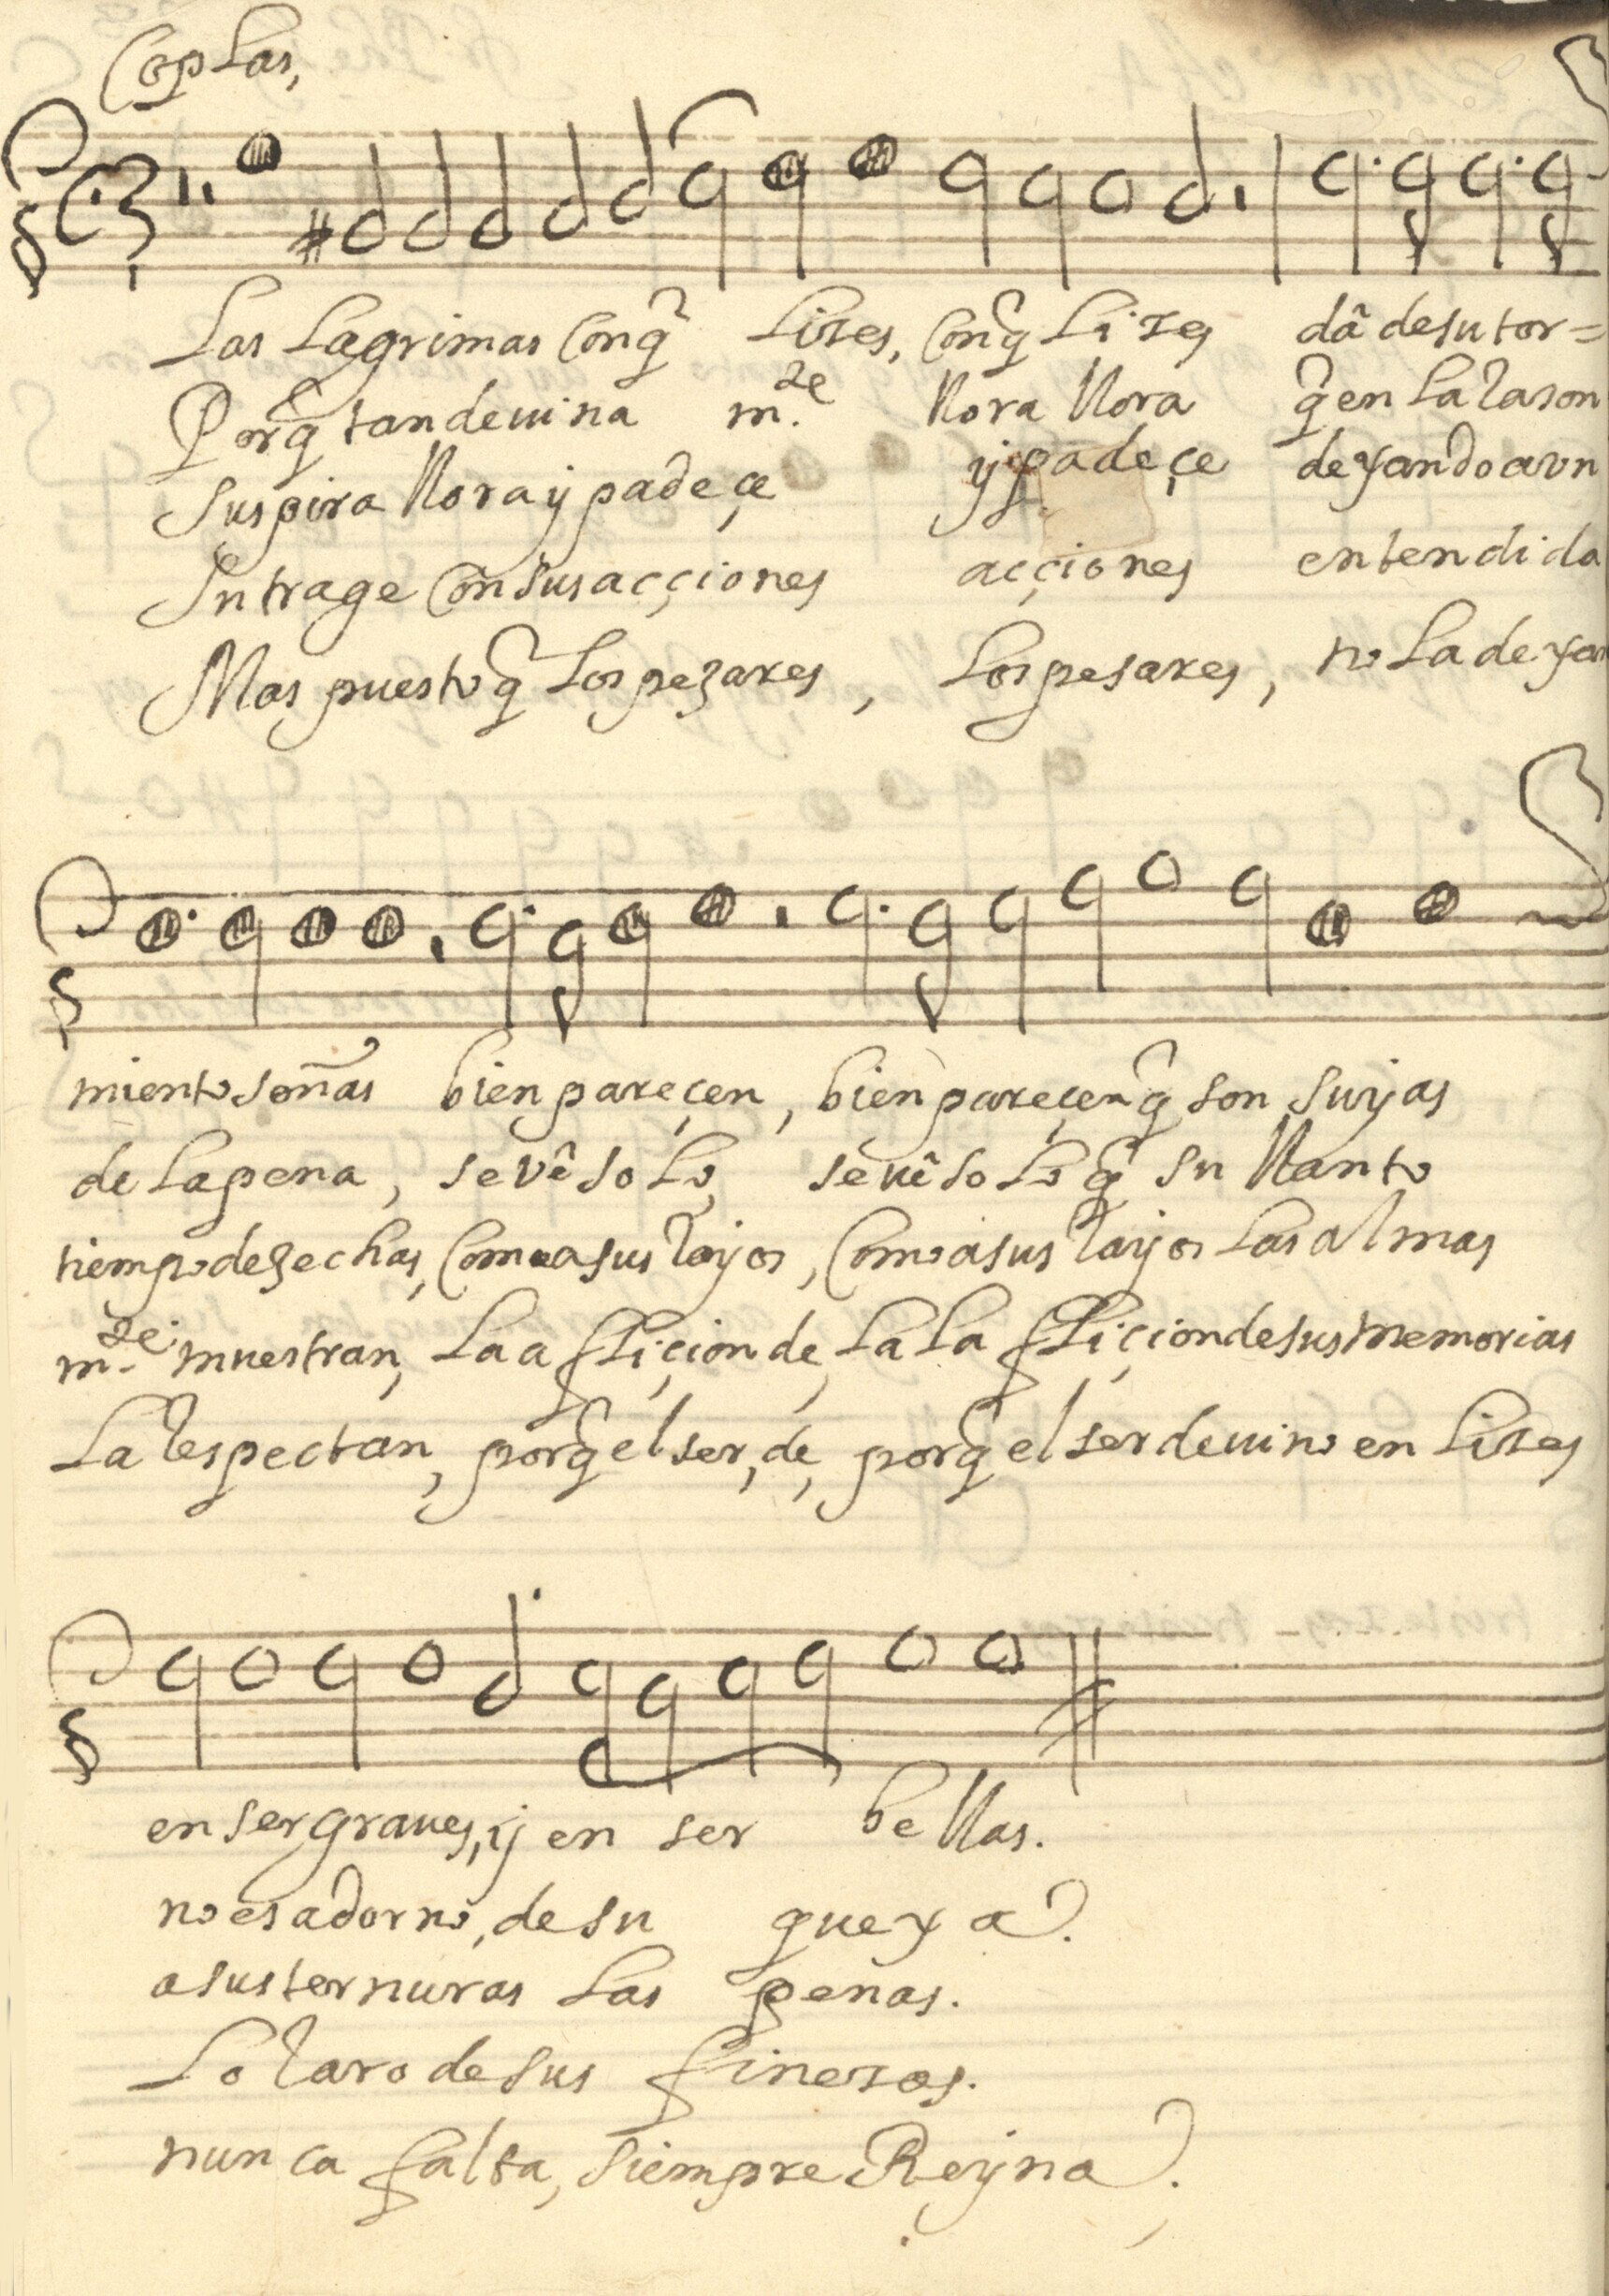 Coplas,
Las Lagrimas Conq̃ Lizes, Conq̃ Lizes dâ de su tor=
Porq̃ tan deuina m.te llora llora q̃ en La razon
Suspira llora y padeçe y padeçe dexando a vn
In trage Con sus acçiones acçiones entendida
Mas puesto q̃ Los pezares, Los pesares, no La dexan
miento señas bien pareçen, bien pareçen q̃ son suyas
de La pena, se vê solo, se vê solo q̃ su llanto
tiempo dezechas, Como a sus rayos, Como a sus rayos Las almas
m.te muestran, La afliçion de, La La afliçion de sus memorias
La respectan, porq̃ el ser, de, porq̃ el ser deuino en Lizes
en ser graues, y en ser bellas.
no es adorno, de su quexa.
a sus ternuras Las penas.
Lo raro de sus finezas.
nunca falta, siempre Reyna.